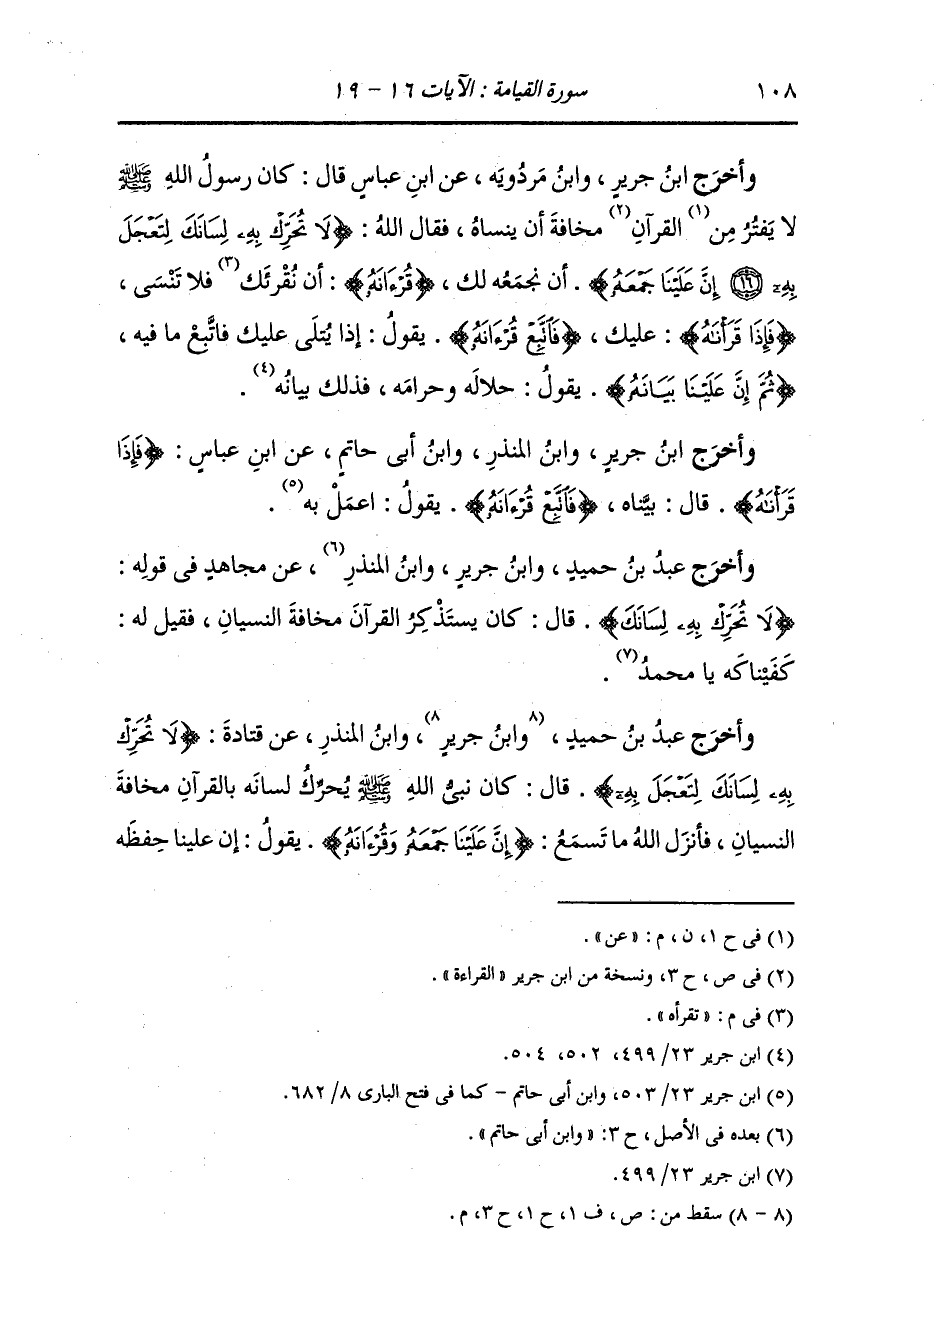 ١٠٨ سورة القيامة : الآيات ١٦ - ١٩
وأخرَج ابنُ جريرٍ ، وابنُ مَردُويَه ، عن ابنِ عباسٍ قال : كان رسولُ اللهِ ﷺ
لا يَفتُرُ مِن(١) القرآنِ(٢) مخافةَ أن ينساهُ ، فقال اللهُ : ﴿لَا تُحَرِّكْ بِهِۦ لِسَانَكَ لِتَعْجَلَ
بِهِۦٓ ﴿١٦﴾ إِنَّ عَلَيْنَا جَمْعَهُ﴾ . أن نجمَعَه لك ، ﴿قُرْءَانَهُ﴾ : أن نُقْرئَك(٣) فلا تَنْسَى ،
﴿فَإِذَا قَرَأْنَٰهُ﴾ : عليك ، ﴿فَٱتَّبِعْ قُرْءَانَهُ﴾ . يقولُ : إذا يُتلَى عليك فاتَّبِعْ ما فيه ،
﴿ثُمَّ إِنَّ عَلَيْنَا بَيَانَهُ﴾ . يقولُ : حلالَه وحرامَه ، فذلك بيانُه(٤) .
وأخرَج ابنُ جريرٍ ، وابنُ المنذرِ ، وابنُ أبى حاتمٍ ، عن ابنِ عباسٍ : ﴿فَإِذَا
قَرَأْنَٰهُ﴾ . قال : بيَّناه ، ﴿فَٱتَّبِعْ قُرْءَانَهُ﴾ . يقولُ : اعمَلْ به(٥) .
وأخرَج عبدُ بنُ حميدٍ ، وابنُ جريرٍ ، وابنُ المنذرِ(٦) ، عن مجاهدٍ فى قولِه :
﴿لَا تُحَرِّكْ بِهِۦ لِسَانَكَ﴾ . قال : كان يستَذْكِرُ القرآنَ مخافةَ النسيانِ ، فقيل له :
كَفَيْناكَه يا محمدُ(٧) .
وأخرَج عبدُ بنُ حميدٍ ، (٨وابنُ جريرٍ٨) ، وابنُ المنذرِ ، عن قتادةَ : ﴿لَا تُحَرِّكْ
بِهِۦ لِسَانَكَ لِتَعْجَلَ بِهِۦٓ﴾ . قال : كان نبىُّ اللهِ ﷺ يُحرِّكُ لسانَه بالقرآنِ مخافةَ
النسيانِ ، فأنزَل اللهُ ما تَسمَعُ : ﴿إِنَّ عَلَيْنَا جَمْعَهُ وَقُرْءَانَهُ﴾ . يقولُ : إن علينا حِفظَه
(١) فى ح ١، ن ، م : «عن» .
(٢) فى ص ، ح ٣، ونسخة من ابن جرير «القراءة» .
(٣) فى م : «تقرأه» .
(٤) ابن جرير ٢٣/ ٤٩٩، ٥٠٢، ٥٠٤.
(٥) ابن جرير ٢٣/ ٥٠٣، وابن أبى حاتم - كما فى فتح البارى ٨/ ٦٨٢.
(٦) بعده فى الأصل ، ح ٣: «وابن أبى حاتم» .
(٧) ابن جرير ٢٣/ ٤٩٩.
(٨ - ٨) سقط من : ص ، ف ١، ح ١، ح ٣، م .